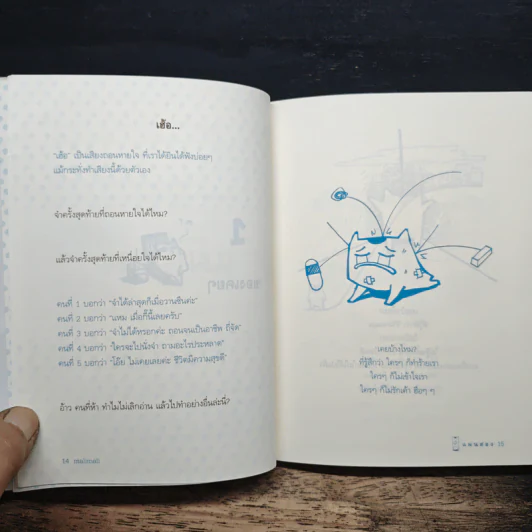 เฮ้อ...
"เฮ้อ" เป็นเสียงถอนหายใจ ที่เราได้ยินได้ฟังบ่อยๆ
แม้กระทั่งทำเสียงนี้ด้วยตัวเอง
จำครั้งสุดท้ายที่ถอนหายใจได้ไหม?
แล้วจำครั้งสุดท้ายที่เหนื่อยใจได้ไหม?
คนที่ 1 บอกว่า "จำได้ล่าสุดก็เมื่อวานซืนค่ะ"
คนที่ 2 บอกว่า "แหม เมื่อกี้นี้เลยครับ"
คนที่ 3 บอกว่า "จำไม่ได้หรอกค่ะ ถอนจนเป็นอาชีพ ถี่จัด"
คนที่ 4 บอกว่า "ใครจะไปนั่งจำ ถามอะไรประหลาด"
คนที่ 5 บอกว่า "โอ๊ย ไม่เคยเลยค่ะ ชีวิตมีความสุขดี"
อ้าว คนที่ห้า ทำไมไม่เลิกอ่าน แล้วไปทำอย่างอื่นล่ะนี่?
14
เคยบ้างไหม?
ที่รู้สึกว่า ใครๆ ก็ทำร้ายเรา
ใครๆ ก็ไม่เข้าใจเรา
ใครๆ ก็ไม่รักเค้า ฮือๆ ๆ
15